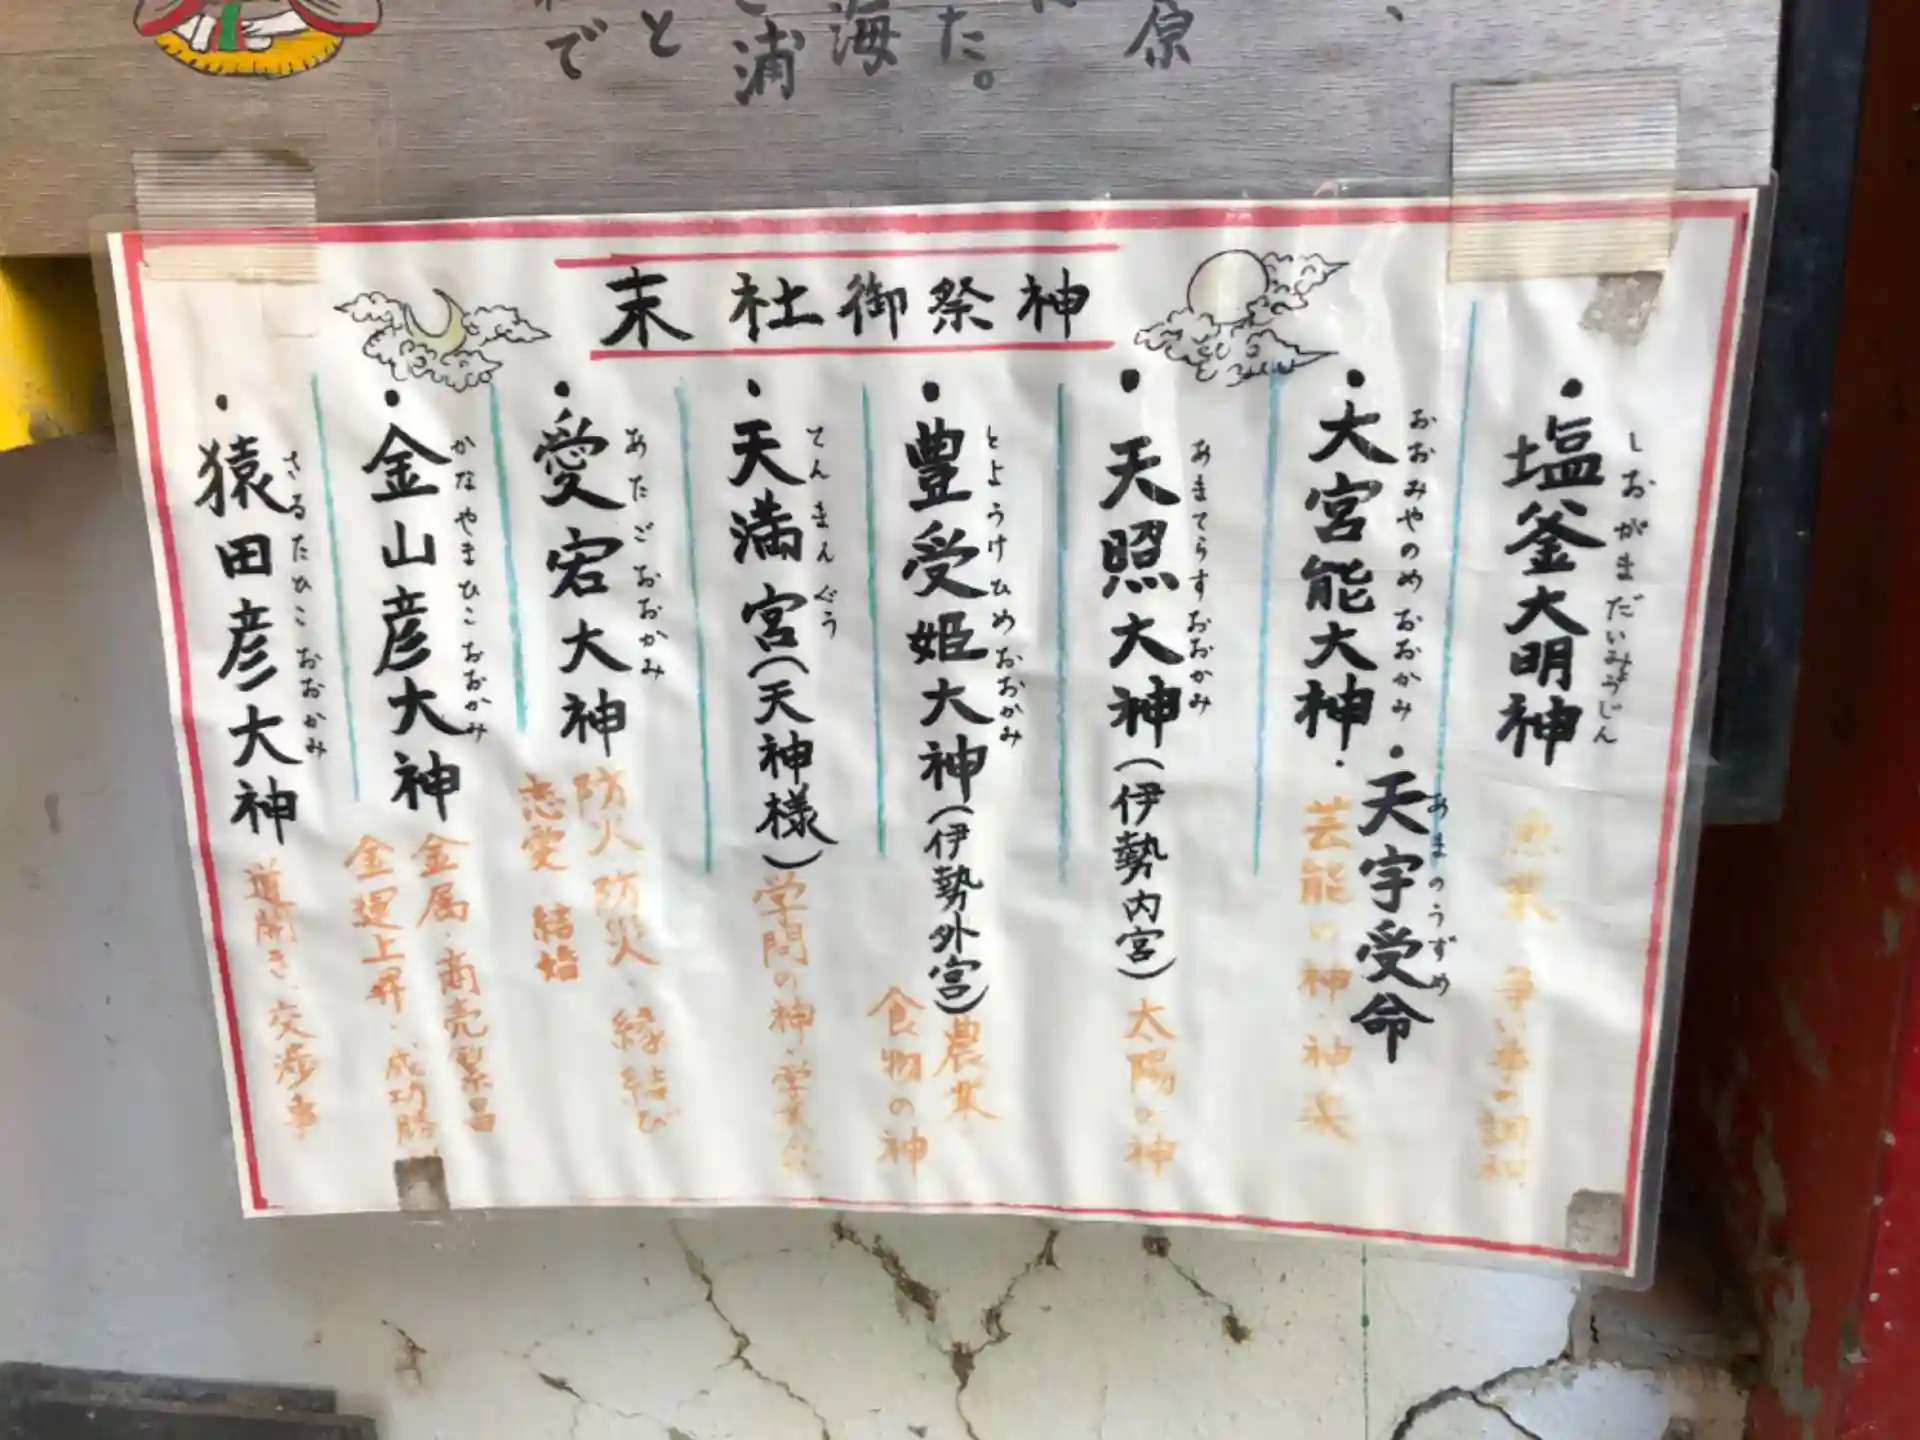 原
た。
海
浦
と
で
末社御祭神
・塩釜大明神
しおがまだいみょうじん
漁業 争い事の調和
・大宮能大神
おおみやのめおおかみ
・天宇受命
あまのうずめ
芸能の神・神楽
・天照大神(伊勢内宮)
あまてらすおおかみ
太陽の神
・豊受姫大神(伊勢外宮)
とようけひめおおかみ
農業
食物の神
・天満宮(天神様)
てんまんぐう
学問の神・学業
・愛宕大神
あたごおおかみ
防火 防災 縁結び
恋愛 結婚
・金山彦大神
かなやまひこおおかみ
金属・商売繁昌
金運上昇・成功勝
・猿田彦大神
さるたひこおおかみ
道開き・交渉事